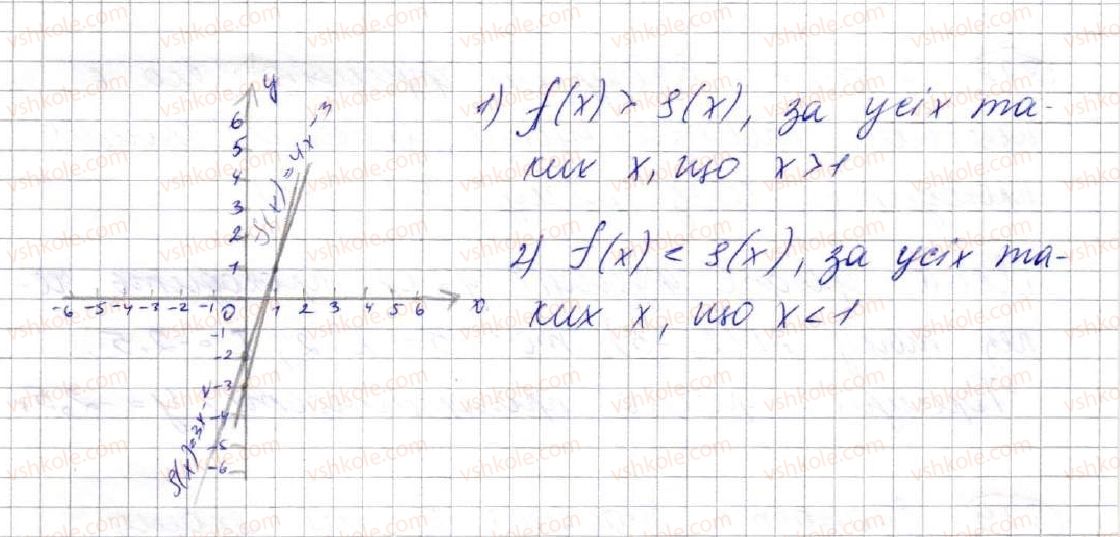 y
6
5
4
3
2
1
-6 -5 -4 -3 -2 -1 0 1 2 3 4 5 6 x
-1
-2
-3
-4
-5
-6
f(x)=4x-3
g(x)=3x-2
1) f(x) > g(x), за усіх та-
ких x, що x>1
2) f(x) < g(x), за усіх та-
ких x, що x<1
vshkole.com